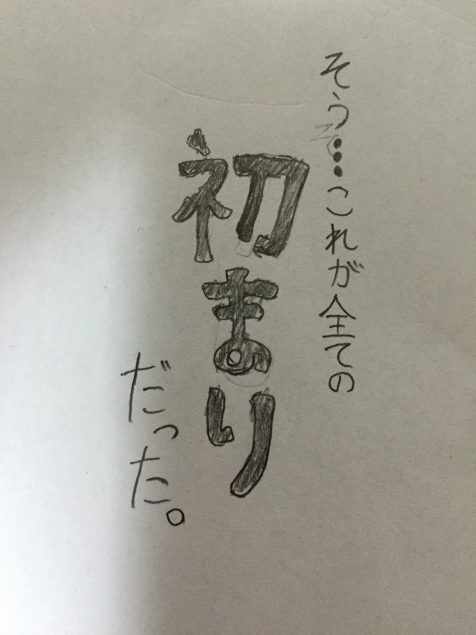 そう…これが全ての
初まり
だった。